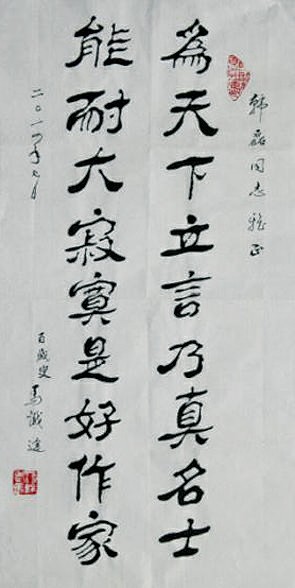 韩磊同志雅正
為天下立言乃真名士
能耐大寂寞是好作家
二〇一四年七月
百歲叟馬識途